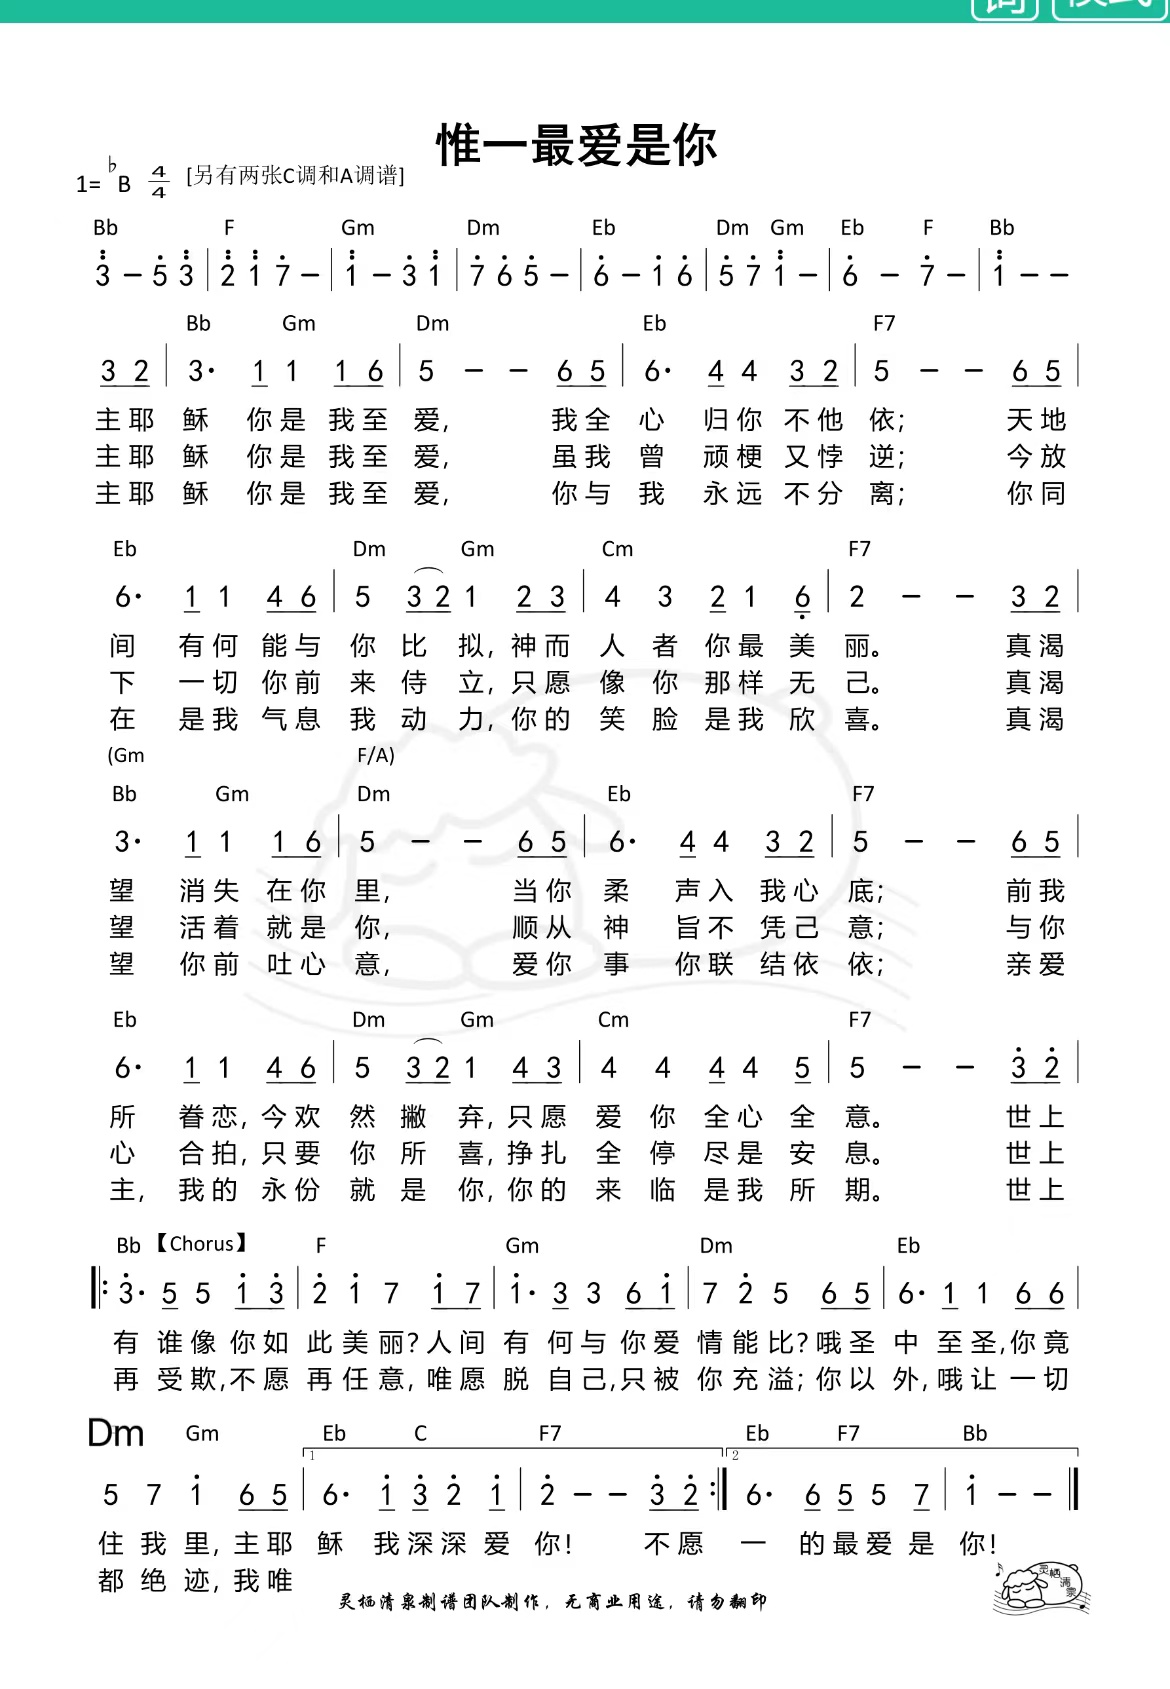 惟一最爱是你
1= ♭B 4/4 [另有两张C调和A调谱]
Bb F Gm Dm Eb Dm Gm Eb F Bb
3 – 5 3 | 2 1 7 – | 1 – 3 1 | 7 6 5 – | 6 – 1 6 | 5 7 1 – | 6 – 7 – | 1 – –
Bb Gm Dm Eb F7
3 2 | 3· 1 1 1 6 | 5 – – 6 5 | 6· 4 4 3 2 | 5 – – 6 5 |
主耶 稣 你是 我至 爱, 我全 心 归你 不他 依; 天地
主耶 稣 你是 我至 爱, 虽我 曾 顽梗 又悖 逆; 今放
主耶 稣 你是 我至 爱, 你与 我 永远 不分 离; 你同
Eb Dm Gm Cm F7
6· 1 1 4 6 | 5 3 2 1 2 3 | 4 3 2 1 6 | 2 – – 3 2 |
间 有何 能与 你 比 拟, 神而 人 者 你最 美 丽。 真渴
下 一切 你前 来 侍 立, 只愿 像 你 那样 无 己。 真渴
在 是我 气息 我 动 力, 你的 笑 脸 是我 欣 喜。 真渴
(Gm F/A)
Bb Gm Dm Eb F7
3· 1 1 1 6 | 5 – – 6 5 | 6· 4 4 3 2 | 5 – – 6 5 |
望 消失 在你 里, 当你 柔 声入 我心 底; 前我
望 活着 就是 你, 顺从 神 旨不 凭己 意; 与你
望 你前 吐心 意, 爱你 事 你联 结依 依; 亲爱
Eb Dm Gm Cm F7
6· 1 1 4 6 | 5 3 2 1 4 3 | 4 4 4 4 5 | 5 – – 3 2 |
所 眷恋, 今欢 然 撇 弃, 只愿 爱 你 全心 全 意。 世上
心 合拍, 只要 你 所 喜, 挣扎 全 停 尽是 安 息。 世上
主, 我的 永份 就 是 你, 你的 来 临 是我 所 期。 世上
Bb 【Chorus】 F Gm Dm Eb
‖: 3· 5 5 1 3 | 2 1 7 1 7 | 1· 3 3 6 1 | 7 2 5 6 5 | 6· 1 1 6 6 |
有 谁像 你如 此美丽? 人间 有 何与 你爱 情能比? 哦圣 中 至圣, 你竟
再 受欺, 不愿 再任意, 唯愿 脱 自己, 只被 你充溢; 你以 外, 哦让 一切
Dm Gm 1 Eb C F7 2 Eb F7 Bb
5 7 1 6 5 | 6· 1 3 2 1 | 2 – – 3 2 :‖ 6· 6 5 5 7 | 1 – – ‖
住 我 里, 主耶 稣 我深深 爱 你! 不愿 一 的最爱 是 你!
都 绝 迹, 我唯
灵栖清泉制谱团队制作, 无商业用途, 请勿翻印
灵栖清泉